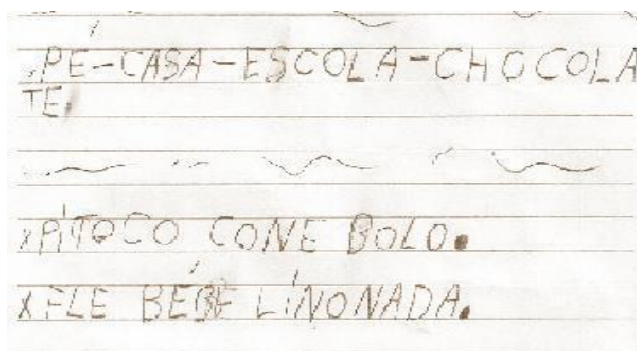 PÉ-CASA-ESCOLA-CHOCOLA
TE.
XPÍTOCO CONE BOLO.
XELE BÉBE LÍNONADA.